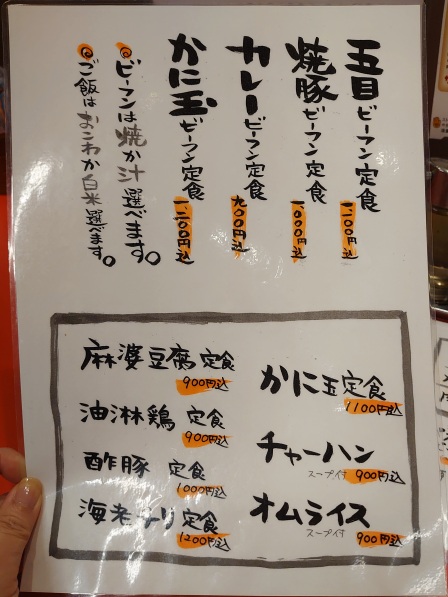 五目ビーフン定食
一、一〇〇円込
焼豚ビーフン定食
一、〇〇〇円込
カレービーフン定食
九〇〇円込
かに玉ビーフン定食
一、二〇〇円込
ビーフンは焼か汁選べます。
ご飯はおこわか白米選べます。
麻婆豆腐定食
900円込
油淋鶏 定食
900円込
酢豚 定食
1000円込
海老チリ定食
1200円込
かに玉定食
1100円込
チャーハン
スープ付 900円込
オムライス
スープ付 900円込